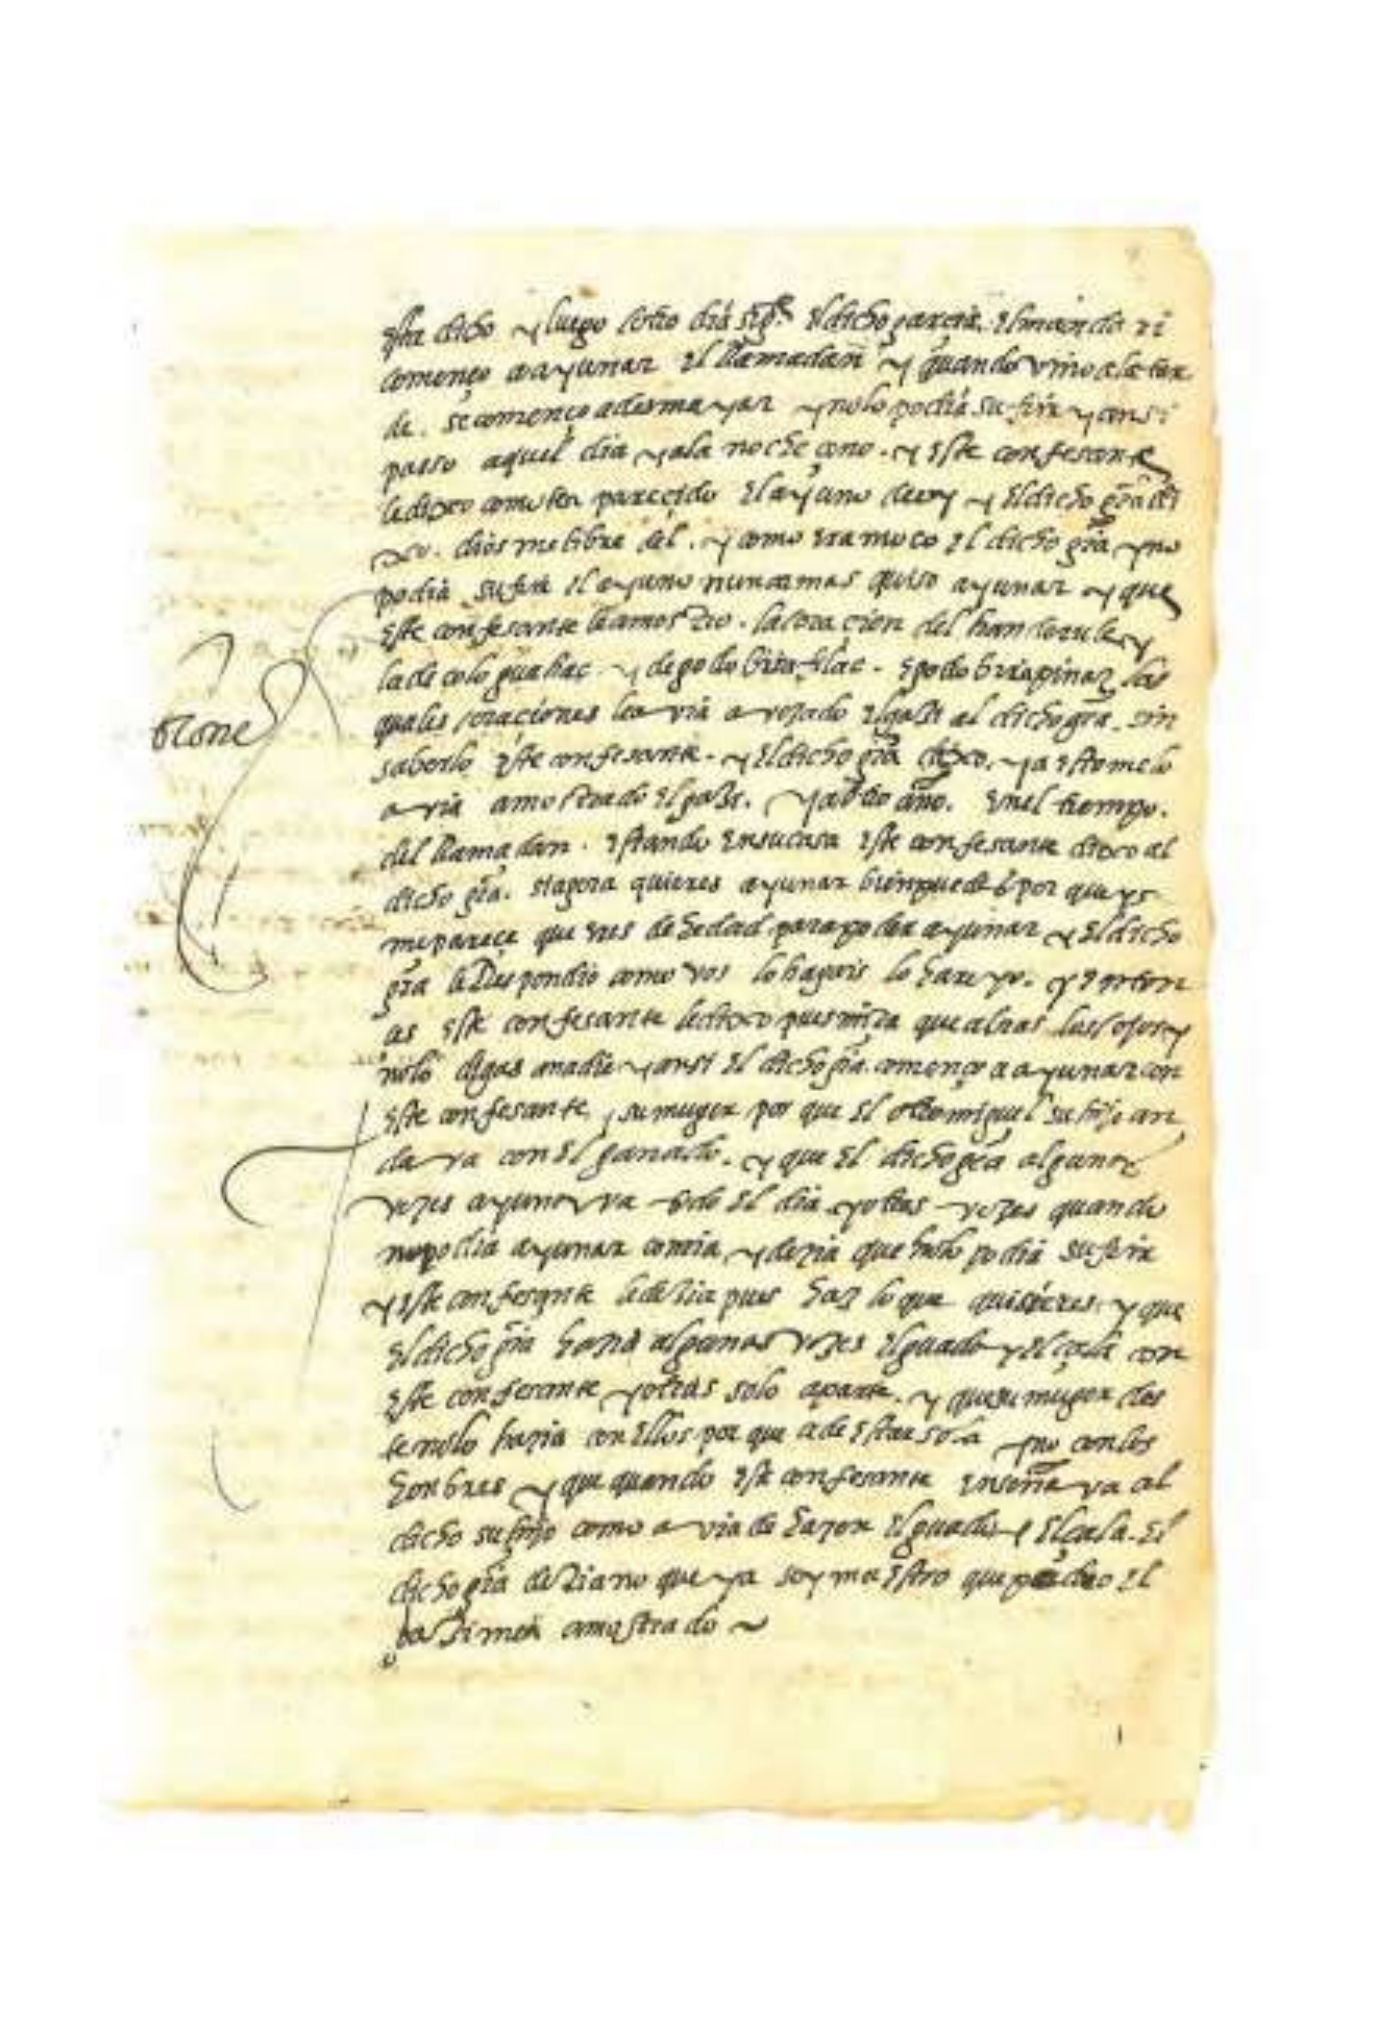 dicho y luego lotro dia sigte el dicho garcia el mando zi
començo a ayunar el llamadan y quando vino a la tar
de se començo a desmayar y no lo podia sufrir y ansi
passo aquel dia y a la noche çeno. y este confesante
le dixo como te a pareçido el ayuno de oy y el dicho gra di
xo. dios me libre del. y como era moço el dicho gra y no
podia sufrir el ayuno nunca mas quiso ayunar y que
este confesante le amostro. la oraçion del handurule y
la de colo guahac. y de
quales oraciones le avia avezado el gazi al dicho gra. sin
saberlo este confesante. y el dicho gra dixo. ya esto me lo
avia amostrado el gazi. y a otro año. en el tiempo.
del llamadan. estando en su casa este confesante dixo al
dicho gra. si agora quieres ayunar bien puedes por que
me pareçe que eres de hedad para poder ayunar y el dicho
gra le Respondio como vos lo hagais lo hare yo. y enton
as este confesante le dixo pues mira que abras los ojos y
no lo digas a nadie y ansi el dicho gra. començo a ayunar con
este confesante y su muger por que el otro miguel su hijo an
dava con el ganado. y que el dicho gra algunas
vezes ayunava todo el dia y otras vezes quando
no podia ayunar comia y dezia que no lo podia sufrir
y este confesante le dezia pues haz lo que quisieres. y que
el dicho gra hazia algunas vezes el guado y el çala con
este confesante y otras solo aparte. y que su muger des
te no lo hazia con ellos por que a de estar sola y no con los
honbres y que quando este confesante enseñava al
dicho su hijo como avia de hazer el guado y el çala. el
dicho gra dezia no que ya soy maestro que el
gazi me a amostrado